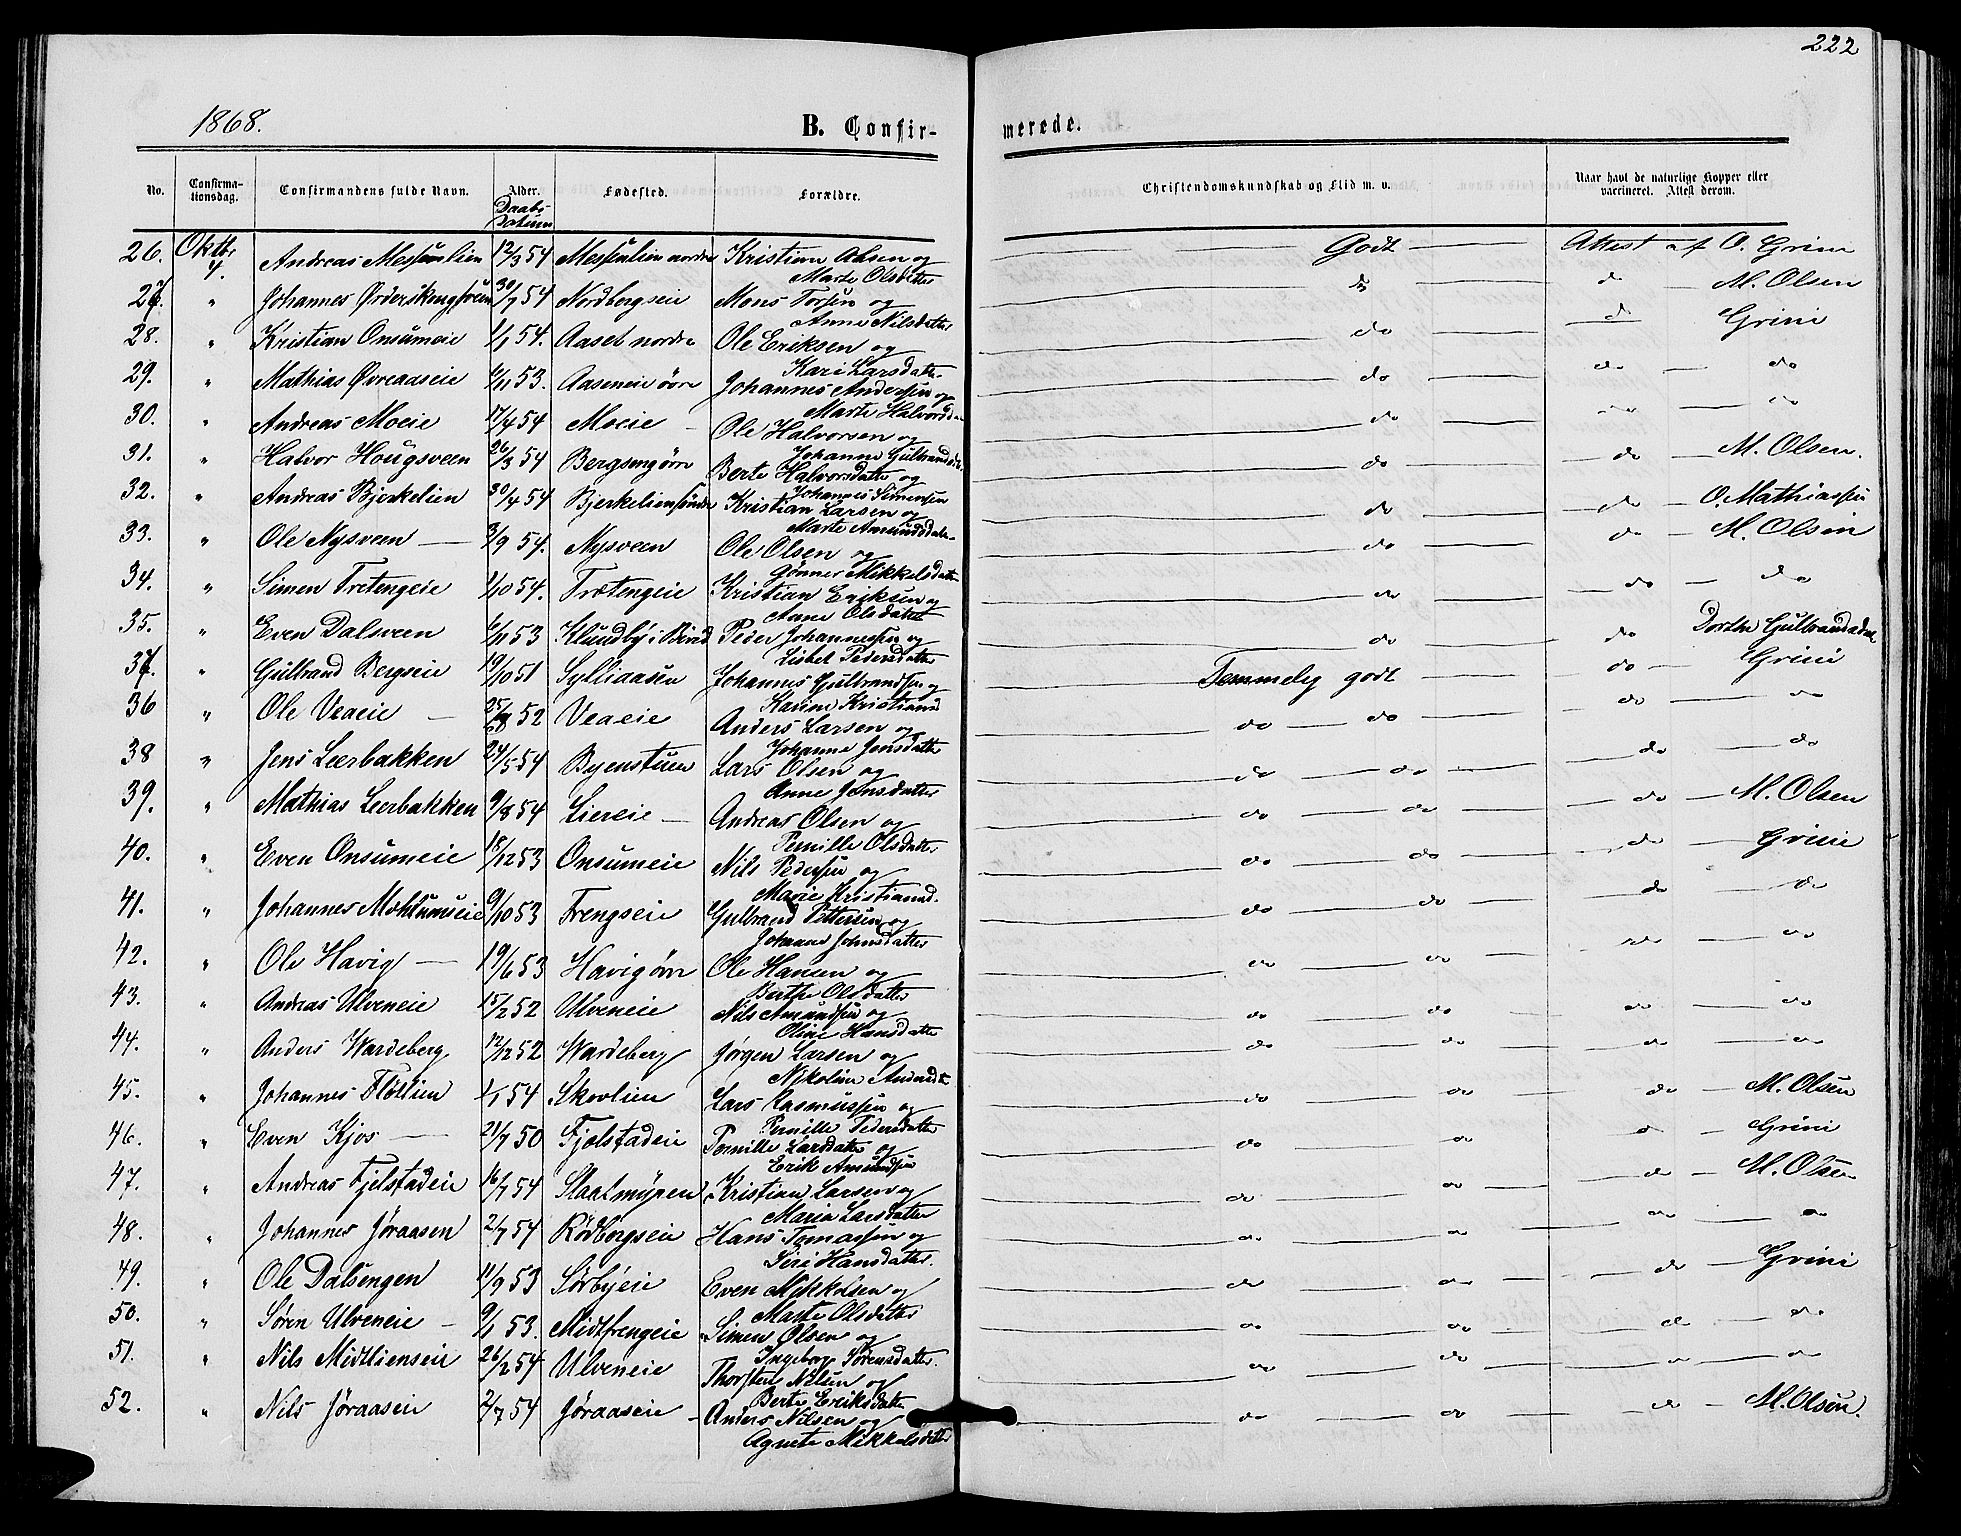 222
1868. B. Confirmerede.
No. Confirmationsdag. Confirmandens fulde Navn. Alder. Fødested. Forældre. Christendomskundskab og Flid m. v. Naar havt de naturlige Kopper eller vaccineret. Attest derom.
Daabs Datum
26. Oktbr 4. Andreas Messenlien 12/3 54 Messenlien nordre Kristian Olsen og Godt Attest af O. Grini
Marte Olsdatter
27. " Johannes Ørderskougsveen 30/7 54 Nordbergseie Mons Torsen og do do M. Olsen
Anne Nilsdatter
28. " Kristian Onsumeie 1/1 54. Aaset nordre Ole Eriksen og do do Grini
Kari Larsdatter
29. " Mathias Øvreaaseie 6/11 53. Aaseneie øvre Johannes Andersen og do do do
Marte Halvorsd
30. " Andreas Moeie 17/4 54 Moeie Ole Halvorsen og do do do
Johanne Gulbrandsd
31. " Halvor Hougsveen 26/3 54 Bergseng øvre Berte Halvorsdatter og do do M. Olsen.
Johannes Simensen
32. " Andreas Bjerkelien 30/4 54 Bjerkelien søndre Kristian Larsen og do do O. Mathiassen
Marte Amundsdatter
33. " Ole Nysveen 3/9 54. Nysveen Ole Olsen og do do M. Olsen
Gønner Mikkelsdatter
34. " Simen Tretengeie 1/10 54. Trætengeie Kristian Eriksen og do do do
Anne Olsdatter
35. " Even Dalsveen 6/11 53 Klundby i Birid Peder Johannessen og do do Dorthe Gulbrandsdat
Lisbet Pedersdatter
37 " Gulbrand Bergseie 19/10 51 Sylliaasen Johannes Gulbrandsen og Temmelig godt do Grini
Karine Kristiansd
36 " Ole Veaeie 25/ 52 Veaeie Anders Larsen og do do do do
Johanne Jensdatter
38 " Jens Leerbakken 24/5 54 Byenstuen Lars Olsen og do do do do
Anne Jensdatter
39. " Mathias Leerbakken 9/8 54 Liereie Andreas Olsen og do do do M. Olsen
Pernille Olsdatter
40. " Even Onsumeie 18/12 53 Onsumeie Nils Pedersen og do do do Grini
Marie Kristiansd.
41. " Johannes Moktumseie 9/10 53 Frengseie Gulbrand Pettersen og do do do do
Johanne Johnsdatter
42. " Ole Havig 19/6 53 Havig øvre Ole Hansen og do do do do
Berthe Olsdatter
43. " Andreas Ulveneie 15/2 52 Ulveneie Nils Amundsen og do do do do
Oline Hansdatter
44. " Anders Wardeberg 12/12 52 Wardeberg Jørgen Larsen og do do do do
Nikoline Andersdt.
45. " Johannes Flotlien 1/1 54 Skovlien Lars Rasmussen og do do do M. Olsen
Pernille Pedersdatter
46. " Even Kjos 21/7 50 Fjelstadeie Pernille Larsdatter og do do do Grini
Erik Amundsen
47. " Andreas Fjelstadeie 16/7 54 Slaatmyren Kristian Larsen og do do do M. Olsen
Maria Larsdatter
48. " Johannes Jøraasen 2/7 54 Rødbergseie Hans Tomassen og do do do do
Siri Hansdatter.
49. " Ole Dalsengen 11/9 53 Sørbyeie Even Mikkelsen og do do do Grini
Marte Olsdatter
50. " Søren Ulveneie 9/1 53. Midtfrengeie Simen Olsen og do do do do
Ingeborg Sørensdatter.
51. " Nils Midtlienseie 26/2 54 Ulveneie Thorsten Nilsen og do do do do
Berte Eriksdatter
52. " Nils Jøraaseie 2/7 54 Jøraaseie Anders Nilsen og do do do M. Olsen.
Agnete Mikkelsdatter